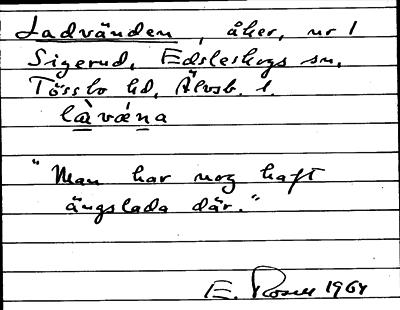 Ladvänden, åker, nr 1
Sigerud, Edsleskogs sn,
Tössbo hd, Älvsb. l.
là̱vǽ̱na
"Man har nog haft
ängslada där."
E. Rosell 1964